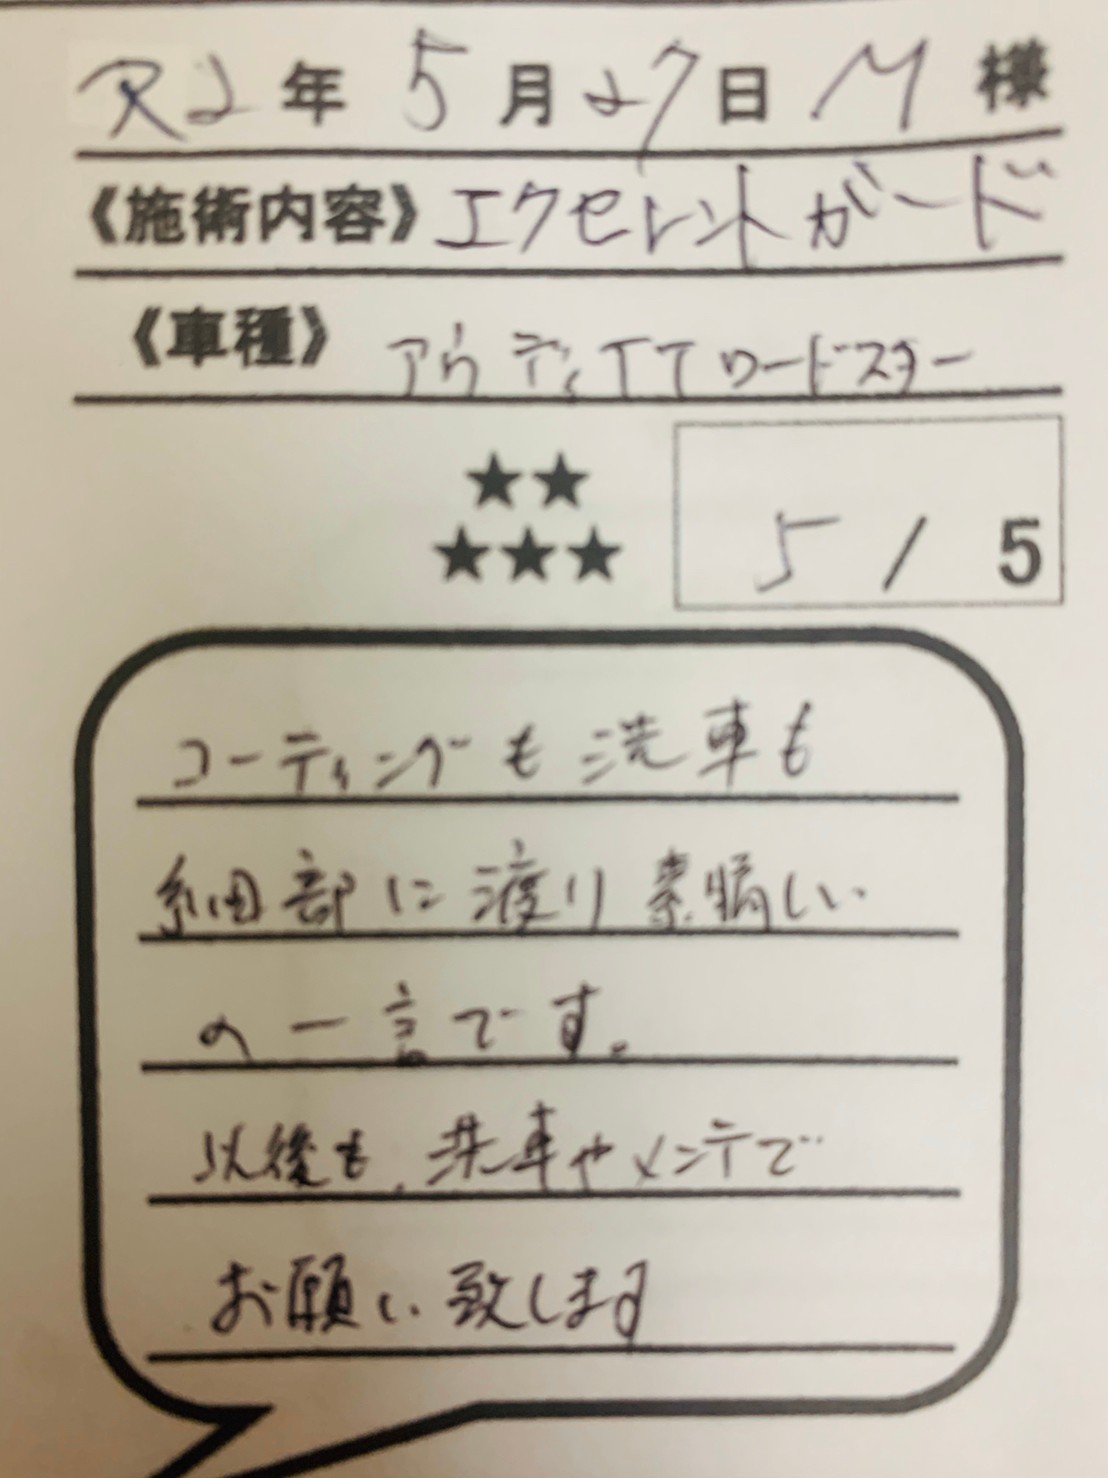 R2年5月27日 M 様
《施術内容》エクセレントガード
《車種》アウディTTロードスター
★★
★★★ 5/5
コーティングも洗車も
細部に渡り素晴しい
の一言です。
以後も、洗車やメンテで
お願い致します